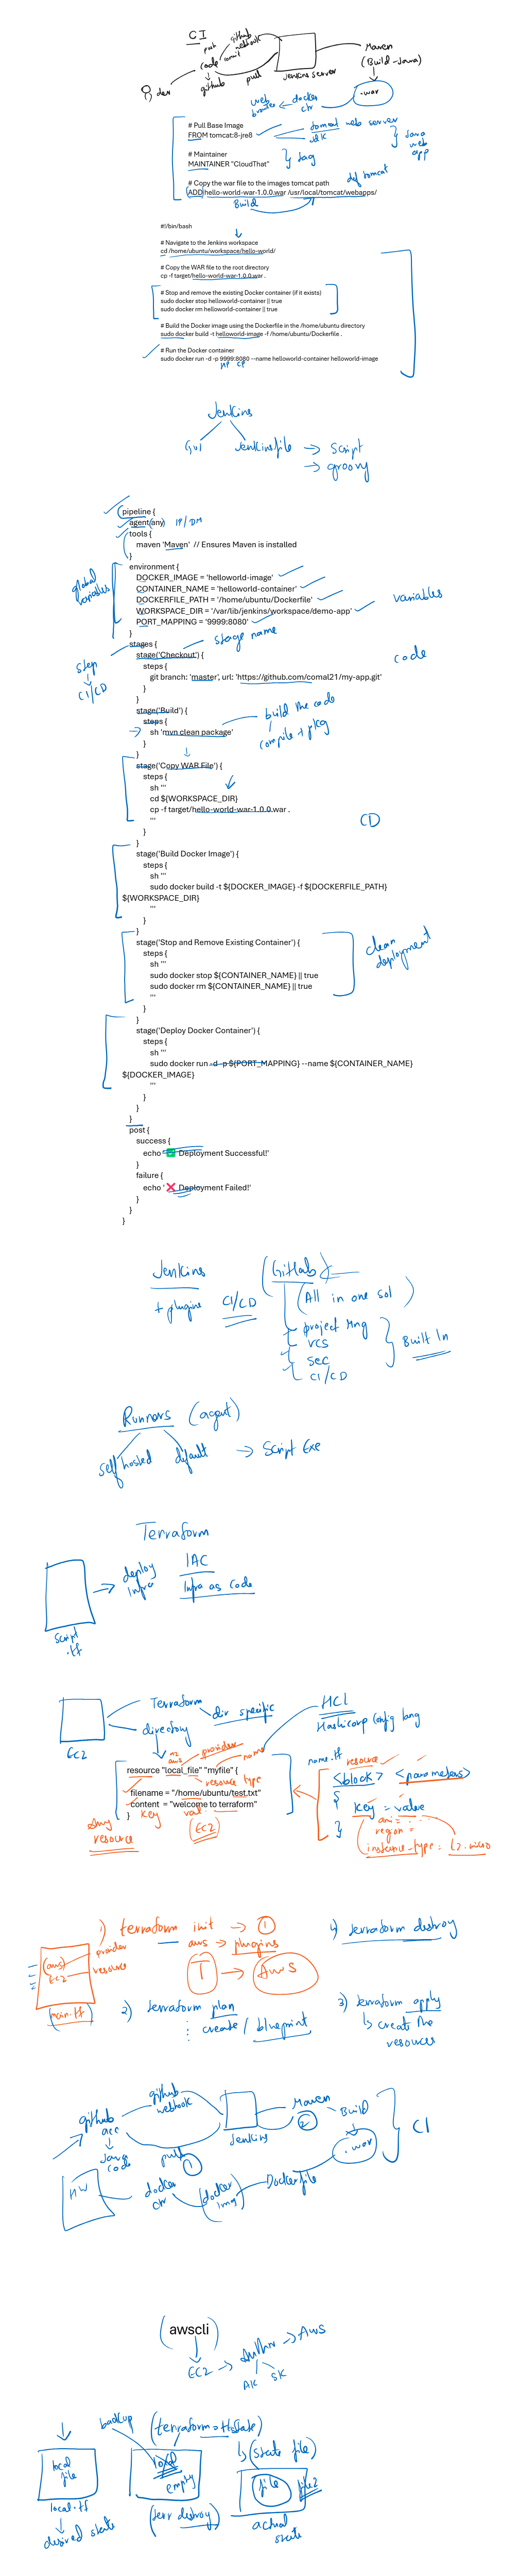 CI
push
github
webhook
code
commit
Maven
(Build-Java)
dev
github
pull
Jenkins server
web
browser
docker
ctr
.war
# Pull Base Image
FROM tomcat:8-jre8
tomcat web server
JDK
Java
web
app
# Maintainer
MAINTAINER "CloudThat"
tag
# Copy the war file to the images tomcat path
def tomcat
ADD hello-world-war-1.0.0.war /usr/local/tomcat/webapps/
Build
#!/bin/bash
# Navigate to the Jenkins workspace
cd /home/ubuntu/workspace/hello-world/
# Copy the WAR file to the root directory
cp -f target/hello-world-war-1.0.0.war .
# Stop and remove the existing Docker container (if it exists)
sudo docker stop helloworld-container || true
sudo docker rm helloworld-container || true
# Build the Docker image using the Dockerfile in the /home/ubuntu directory
sudo docker build -t helloworld-image -f /home/ubuntu/Dockerfile .
# Run the Docker container
sudo docker run -d -p 9999:8080 --name helloworld-container helloworld-image
HP CP
Jenkins
GUI
Jenkinsfile → script
→ groovy
pipeline {
agent any IP/DM
tools {
maven 'Maven' // Ensures Maven is installed
}
environment {
DOCKER_IMAGE = 'helloworld-image'
CONTAINER_NAME = 'helloworld-container'
DOCKERFILE_PATH = '/home/ubuntu/Dockerfile'
WORKSPACE_DIR = '/var/lib/jenkins/workspace/demo-app'
PORT_MAPPING = '9999:8080'
}
global
variables
variables
stages {
stage name
stage('Checkout') {
steps {
git branch: 'master', url: 'https://github.com/comal21/my-app.git'
}
}
step
CI/CD
code
stage('Build') {
steps {
sh 'mvn clean package'
}
}
build the code
compile + pkg
stage('Copy WAR File') {
steps {
sh '''
cd ${WORKSPACE_DIR}
cp -f target/hello-world-war-1.0.0.war .
'''
}
}
CD
stage('Build Docker Image') {
steps {
sh '''
sudo docker build -t ${DOCKER_IMAGE} -f ${DOCKERFILE_PATH}
${WORKSPACE_DIR}
'''
}
}
stage('Stop and Remove Existing Container') {
steps {
sh '''
sudo docker stop ${CONTAINER_NAME} || true
sudo docker rm ${CONTAINER_NAME} || true
'''
}
}
clean
deployment
stage('Deploy Docker Container') {
steps {
sh '''
sudo docker run -d -p ${PORT_MAPPING} --name ${CONTAINER_NAME}
${DOCKER_IMAGE}
'''
}
}
}
post {
success {
echo '✅ Deployment Successful!'
}
failure {
echo '❌ Deployment Failed!'
}
}
}
Jenkins
+ plugins
CI/CD
(GitLab)
(All in one sol)
project Mng
VCS
Sec
CI/CD
Built In
Runners (agent)
self hosted
default
→ Script Exe
Terraform
deploy
Infra
IAC
Infra as Code
script
.tf
EC2
Terraform
dir specific
directory
HCL
Hashicorp Config lang
provider
name
resource "local_file" "myfile" {
resource type
filename = "/home/ubuntu/test.txt"
content = "welcome to terraform"
}
key
val
EC2
resource
name.tf
resource
<block> <parameters>
{
key = value
ami =
region =
}
instance_type = t2.micro
1) terraform init → 1
aws → plugins
T → AWS
(aws)
EC2
provider
resource
(main.tf)
4) terraform destroy
2) terraform plan
create / blueprint
3) terraform apply
↳ create the
resources
github
acc
Java
code
github
webhook
Jenkins
Maven
2
Build
.war
CI
pull
1
HW
docker
ctr
(docker
img)
Dockerfile
(awscli)
EC2 → Authn → AWS
AK SK
backup
(terraform.tfstate)
↳ (state file)
local
file
local
empty
file
file2
local.tf
(terr destroy)
desired state
actual
state